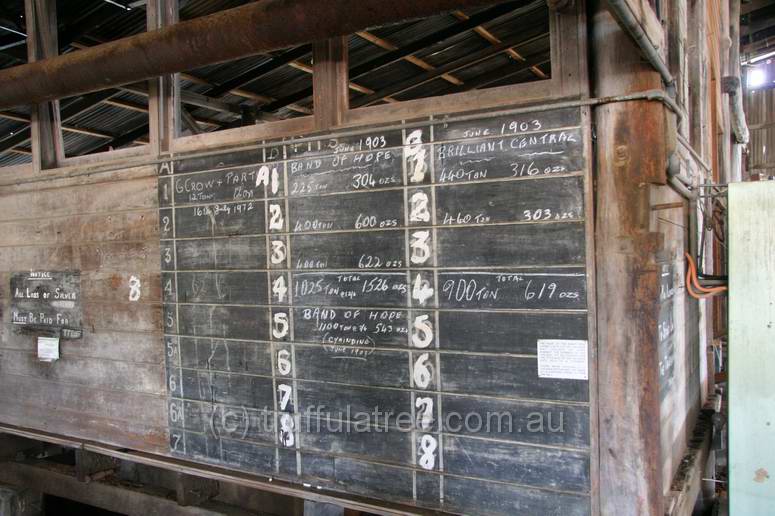 NOTICE
ALL LOTS OF SILVER
MUST BE PAID FOR
8
A
1
2
3
4
5
5
6
6
7
G CROW + PARTY
12 TON
16th July 1972
A1
2
3
4
5
6
7
8
JUNE 1903
BAND OF HOPE
225 TON 304 OZS
400 TON 600 OZS
400 TON 622 OZS
TOTAL
1025 TON 1526 OZS
BAND OF HOPE
1100 TON 543 OZS
(CYANIDING
JUNE 1903
1
2
3
4
5
6
7
8
JUNE 1903
BRILLIANT CENTRAL
440 TON 316 OZS
460 TON 303 OZS
TOTAL
900 TON 619 OZS
(c) truffulatree.com.au